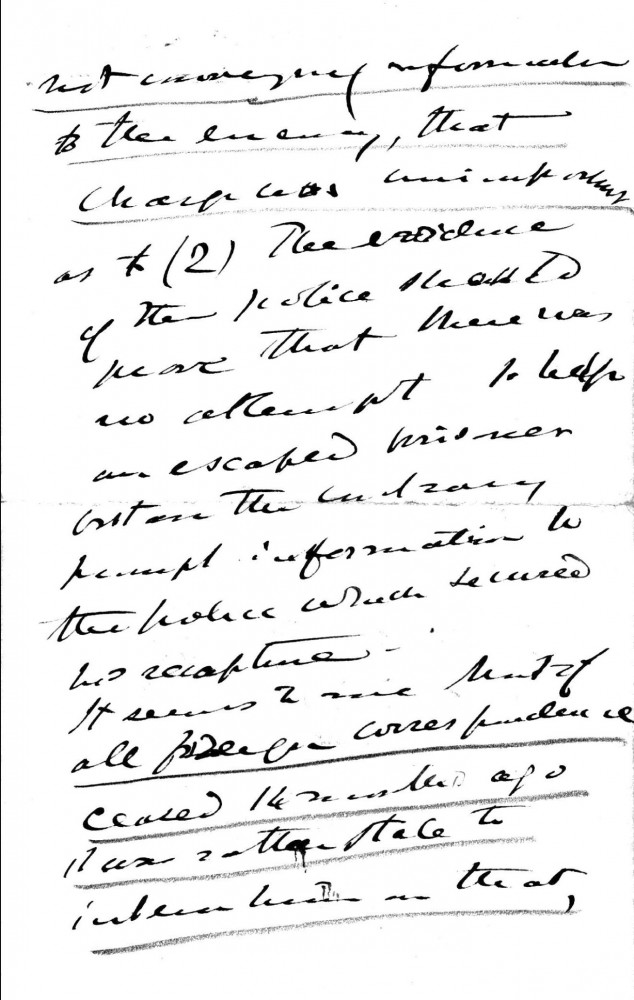 not conveying information
to the enemy, that
charge was unimportant
as to (2) The evidence
of the police should
prove that there was
no attempt to help
an escaped prisoner
but on the contrary
prompt information to
the police which secured
his recapture.
It seems to me that if
all foreign correspondence
ceased 14 months ago
it was rather stale to
intern him on that,